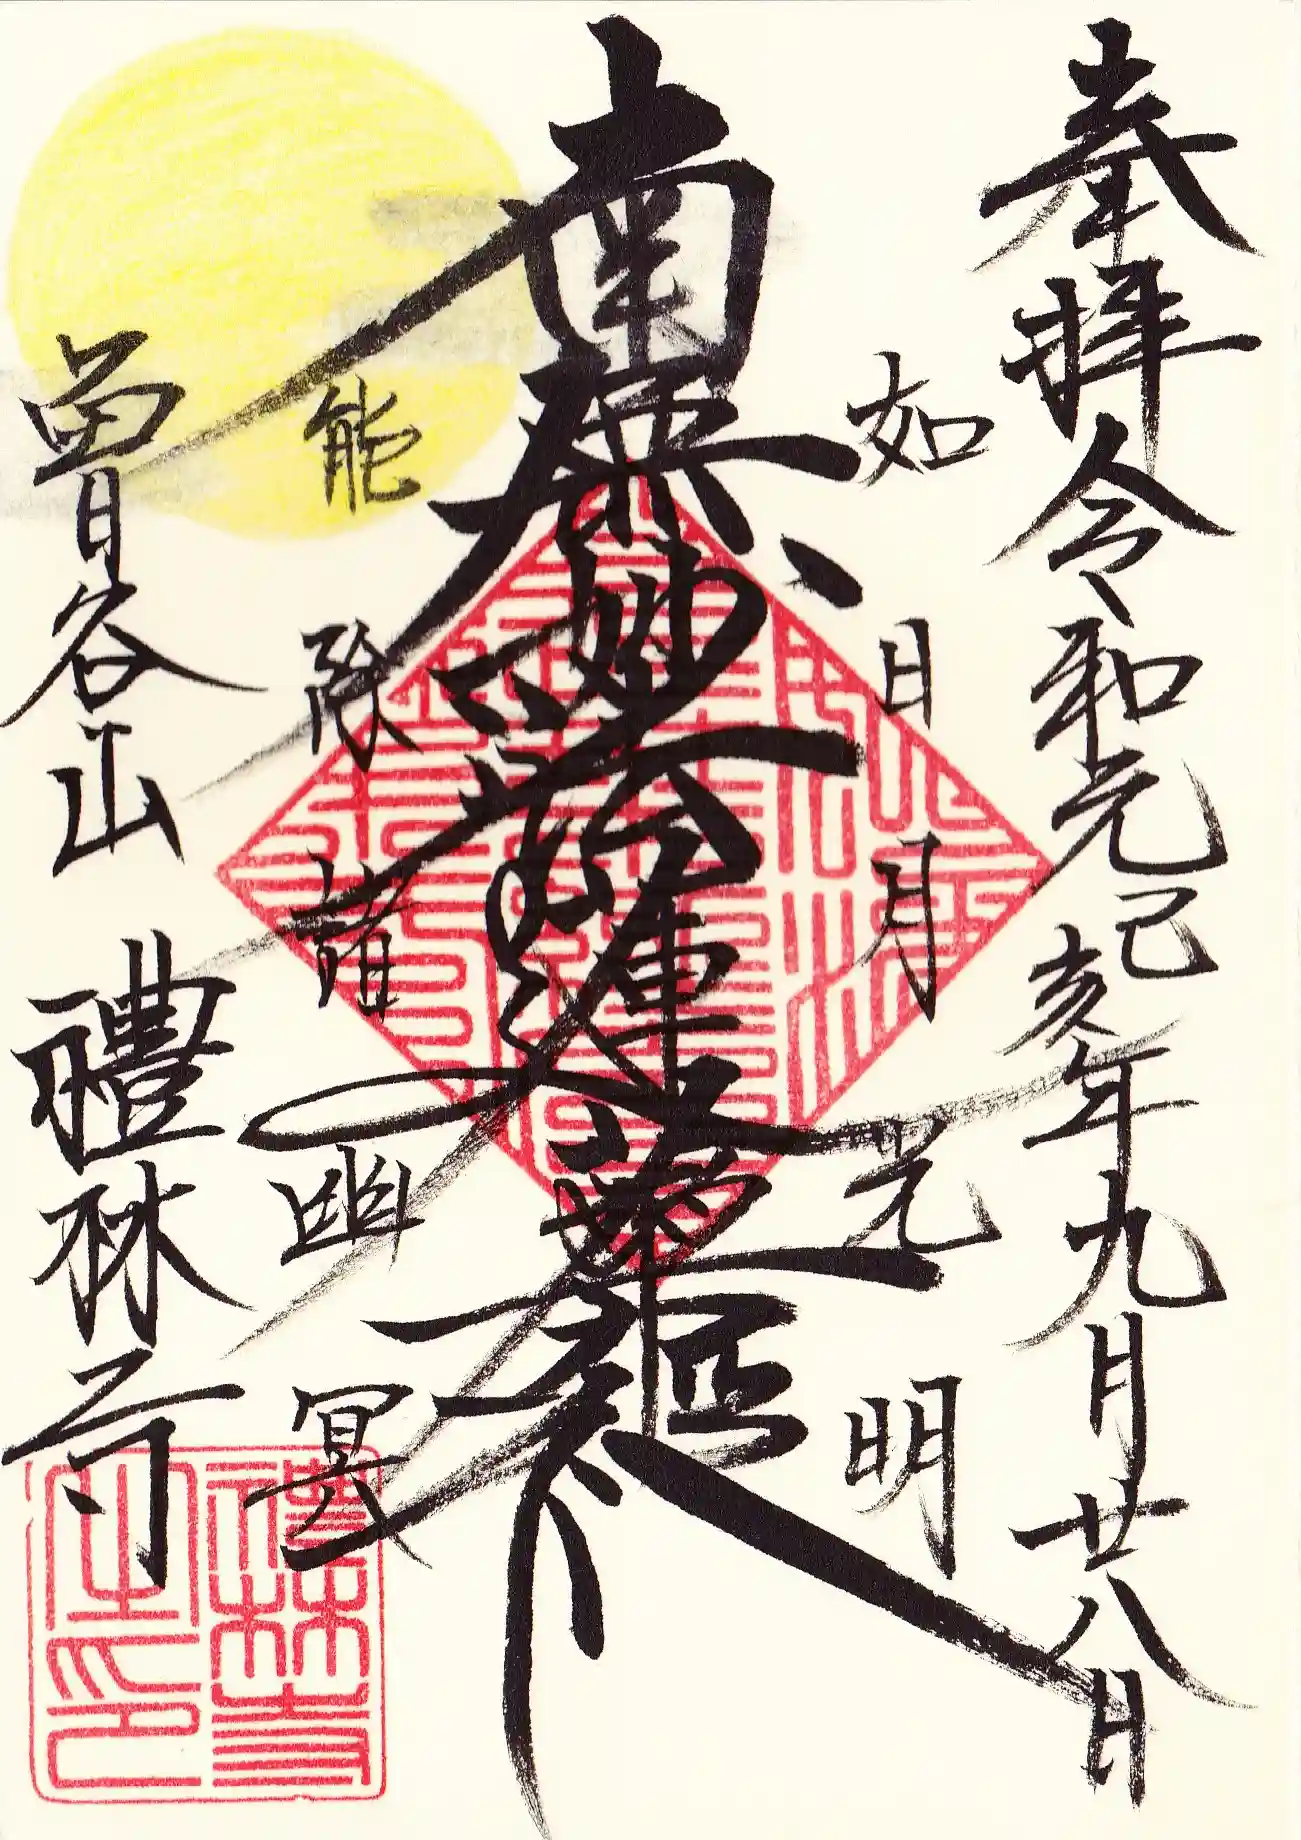 奉拝令和元己亥年九月廿八日
如日月光明
南無妙法蓮華経
能除諸幽冥
曽谷山 禮林寺